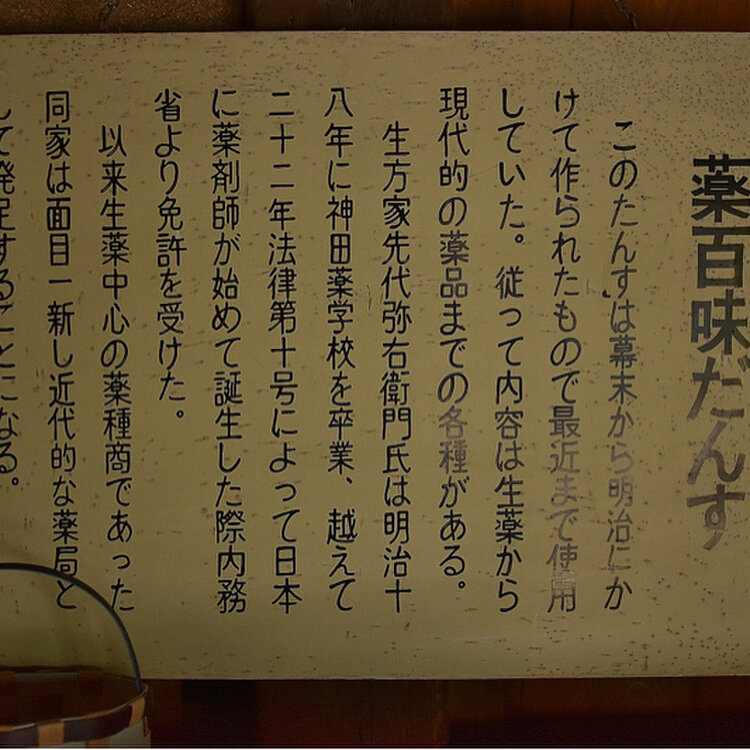 薬百味だんす
このたんすは幕末から明治にか
けて作られたもので最近まで使用
していた。従って内容は生薬から
現代的の薬品までの各種がある。
生方家先代弥右衛門氏は明治十
八年に神田薬学校を卒業、越えて
二十二年法律第十号によって日本
に薬剤師が始めて誕生した際内務
省より免許を受けた。
以来生薬中心の薬種商であった
同家は面目一新し近代的な薬局と
して発足することになる。